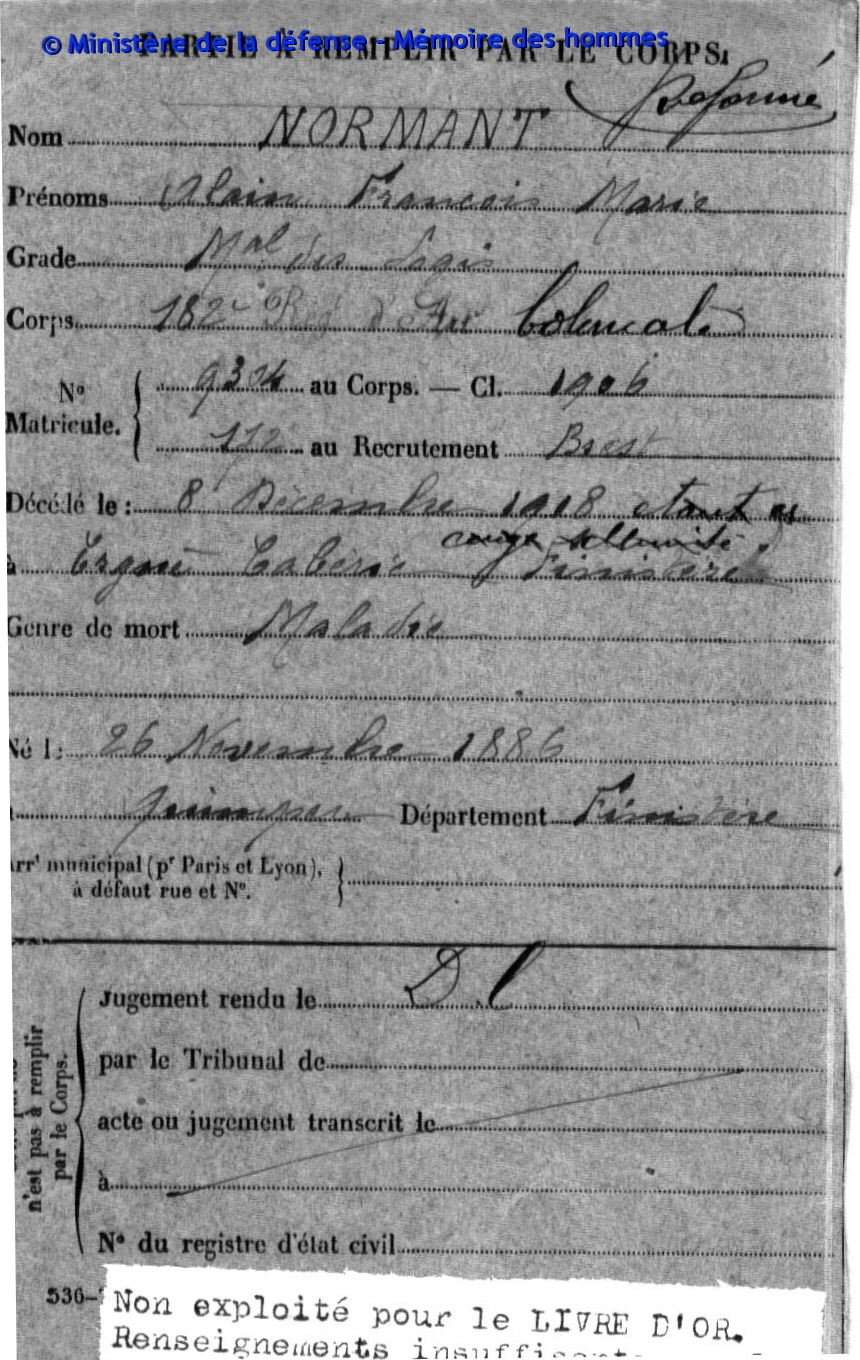 © Ministère de la défense - Mémoire des hommes
PARTIE À REMPLIR PAR LE CORPS.
Reformé
Nom NORMANT
Prénoms Alain Francois Marie
Grade Mal des Logis
Corps 182e Reg d'Art Coloniale
No Matricule. 9304 au Corps. — Cl. 1906
172 au Recrutement Brest
Décédé le : 8 Décembre 1918 étant en
congé
à Ergué Gabéric Finistère
Genre de mort Maladie
Né le 26 Novembre 1886
Quimper Département Finistère
Arrt municipal (pr Paris et Lyon),
à défaut rue et No.
Jugement rendu le D.C
par le Tribunal de
acte ou jugement transcrit le
à
No du registre d'état civil
n'est pas à remplir
par le Corps.
536-
Non exploité pour le LIVRE D'OR.
Renseignements insuffisants